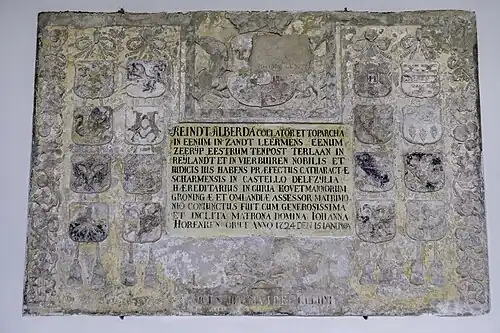 REINDT ALBERDA COLLATOR ET TOPARCHA
IN EENUM IN ZANDT LEERMENS EENUM
ZEERYP EESTRUM TENPOST TERLAAN IN
REYLANDT ET IN VIERBUIREN NOBILIS ET
IURIS HABENS PRÆFECTUS CATHARACTÆ
SCHARMENSIS IN CASTELLO DELFZYLIA
HÆREDITARIUS IN CURIA MAIORUM
GRONINGÆ ET OMLANDIÆ ASSESSOR MATRIMO
NIO CONIUNCTUS FUIT CUM GENEROSISSIMA
ET INCLITA MATRONA DOMINA IOHANNA
HORENKEN OBIIT ANNO 1724 DEN 15 IANUARY